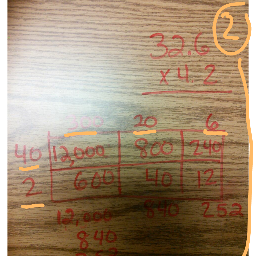 2
32,6
x 4 2
300 20 6
40 12,000 800 240
2 600 40 12
12,000 840 252
840
252